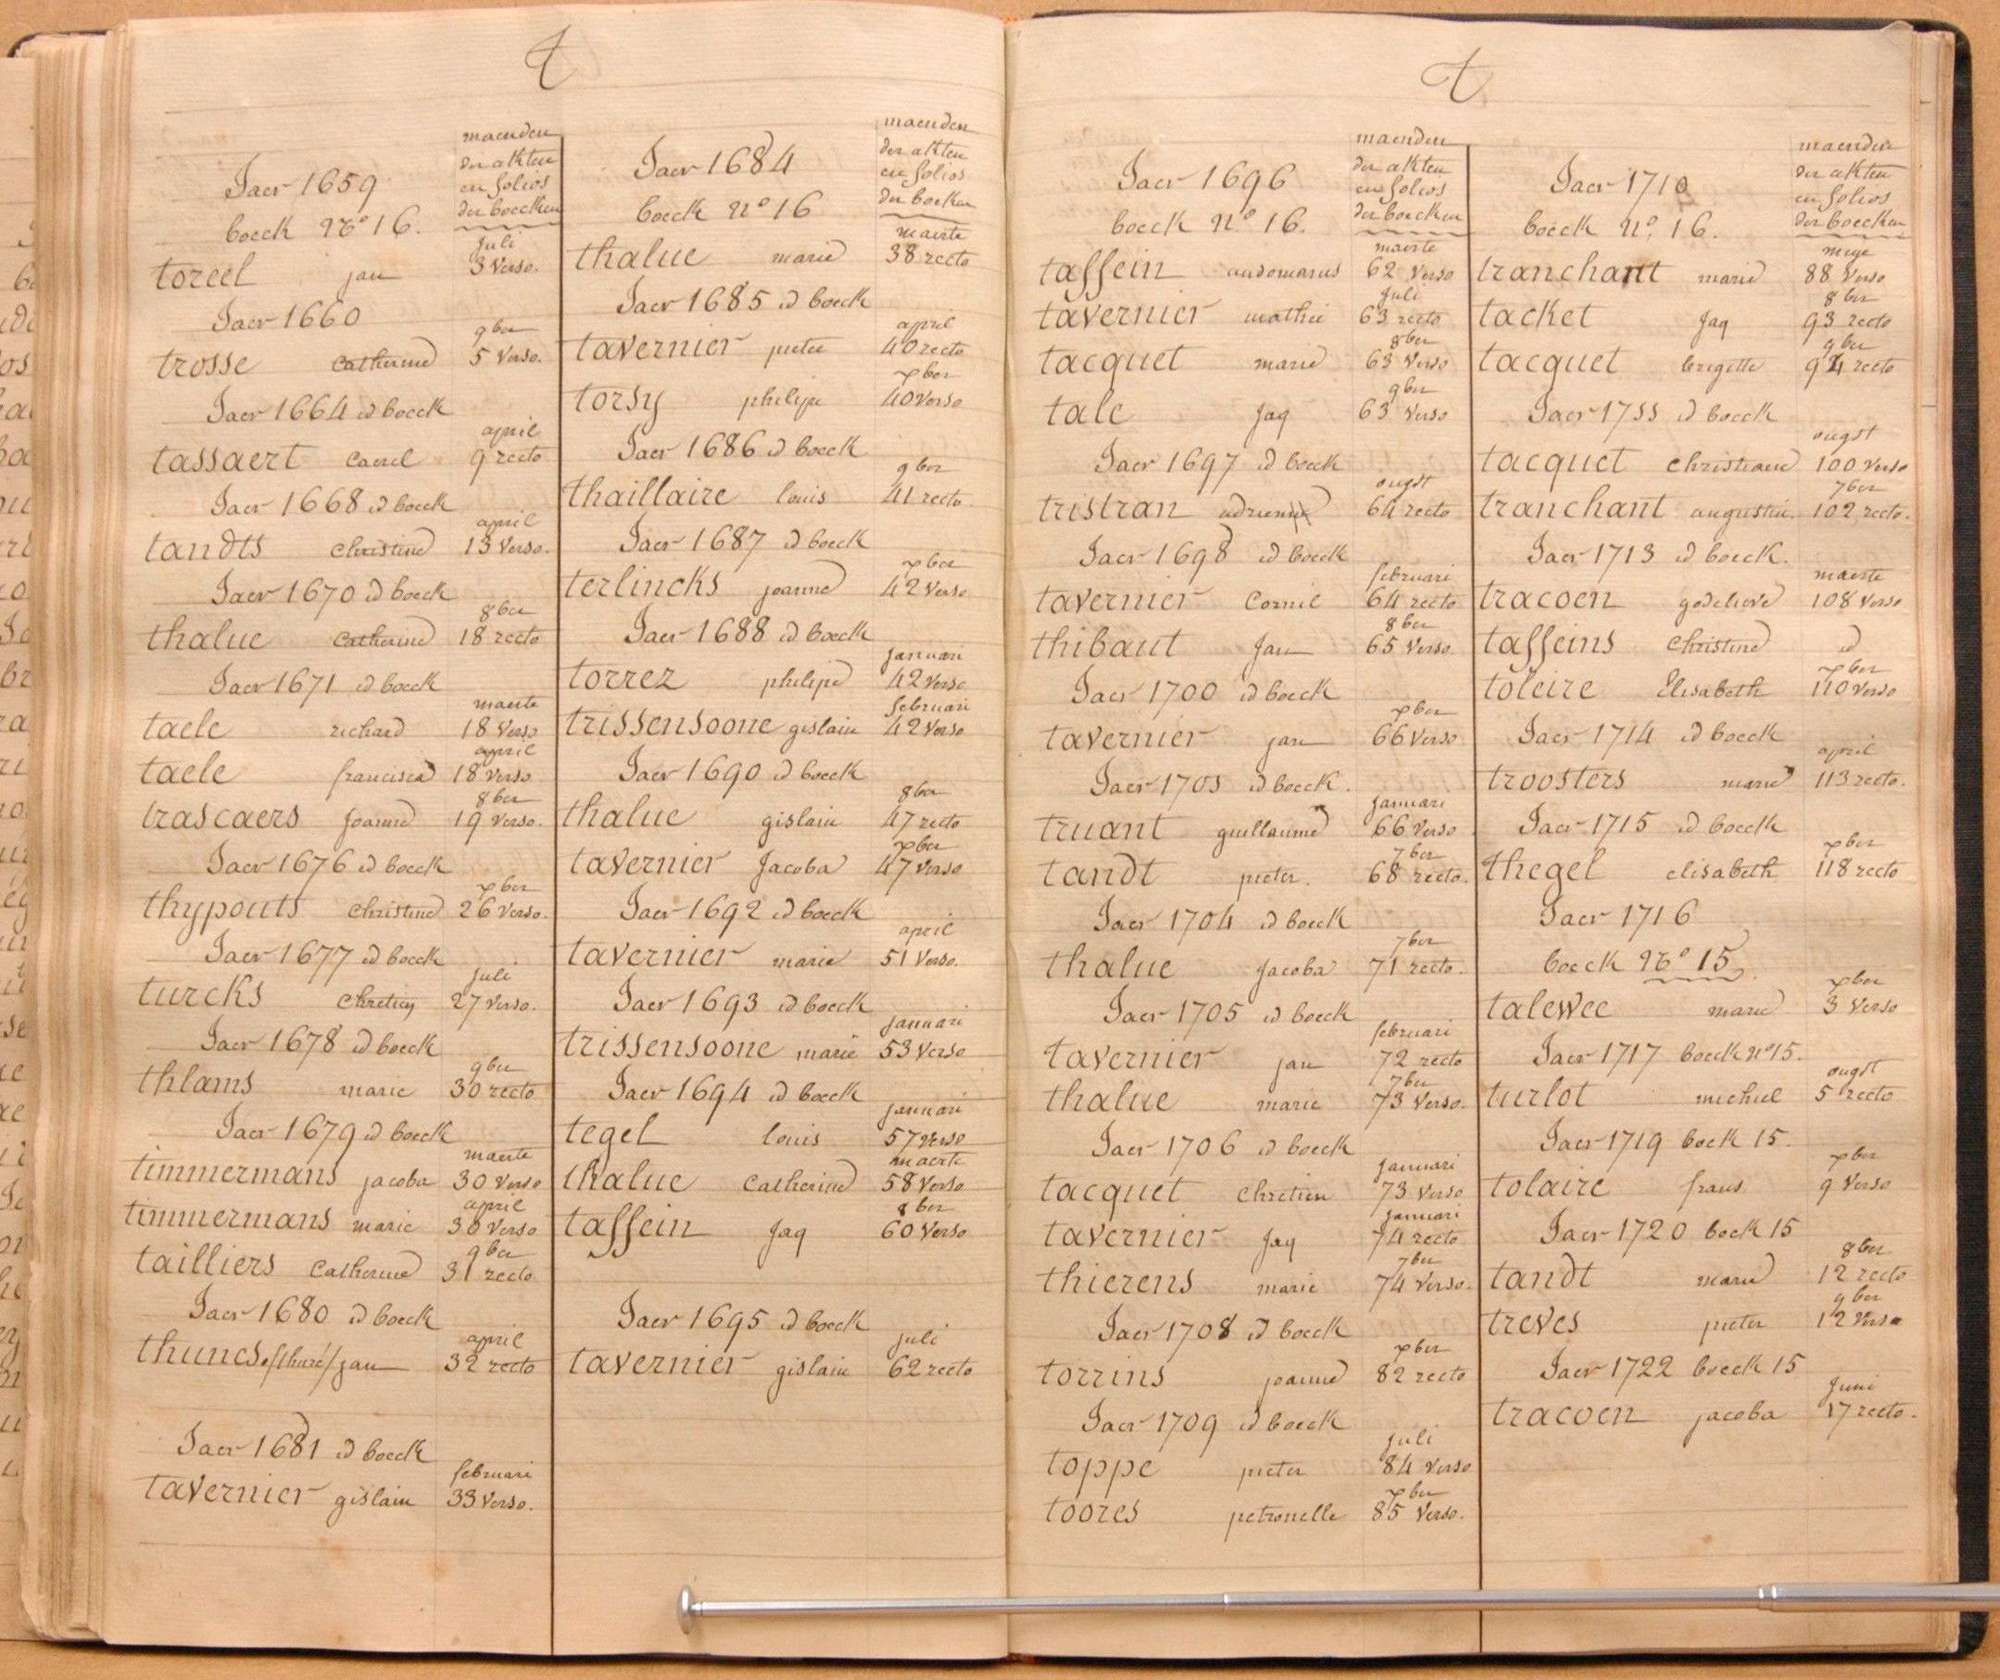 t
maenden
der akten
en folios
der boecken
Jaer 1659
boeck No 16.
juli
toreel jan 3 verso.
Jaer 1660
9ber
trosse catherine 5 verso.
Jaer 1664 id boeck
april
tassaert carel 9 recto
Jaer 1668 id boeck
april
tandts christine 13 verso.
Jaer 1670 id boeck
8ber
thalue catherine 18 recto
Jaer 1671 id boeck
maerte
taele richard 18 verso
april
taele francisca 18 verso
8ber
trascaers joanne 19 verso.
Jaer 1676 id boeck
xber
thypouts christine 26 verso.
Jaer 1677 id boeck
juli
turcks chretien 27 verso.
Jaer 1678 id boeck
9ber
thlams marie 30 recto
Jaer 1679 id boeck
maerte
timmermans jacoba 30 verso
april
timmermans marie 30 verso
9ber
tailliers catherine 31 recto
Jaer 1680 id boeck
april
thunes /thuré/ jan 32 recto
Jaer 1681 id boeck
februari
tavernier gislain 33 verso.
maenden
der akten
en folios
der boeken
Jaer 1684
boeck No 16
maerte
thalue marie 38 recto
Jaer 1685 id boeck
april
tavernier pieter 40 recto
xber
torsy philipe 40 verso
Jaer 1686 id boeck
9ber
thaillaire louis 41 recto
Jaer 1687 id boeck
xber
terlincks joanne 42 verso
Jaer 1688 id boeck
januari
torrez philipe 42 verso
februari
trissensoone gislain 42 verso
Jaer 1690 id boeck
8ber
thalue gislain 47 recto
xber
tavernier Jacoba 47 verso
Jaer 1692 id boeck
april
tavernier marie 51 verso.
Jaer 1693 id boeck
januari
trissensoone marie 53 verso
Jaer 1694 id boeck
januari
tegel louis 57 verso
maerte
thalue catherine 58 verso
8ber
taffein Jaq 60 verso
Jaer 1695 id boeck
juli
tavernier gislain 62 recto
t
maenden
der akten
en folios
der boecken
Jaer 1696
boeck No 16.
maerte
taffein audomarus 62 verso
juli
tavernier mathie 63 recto
8ber
tacquet marie 63 verso
9ber
tale Jaq 63 verso
Jaer 1697 id boeck
ougst
tristran adrien 64 recto
Jaer 1698 id boeck
februari
tavernier Cornil 64 recto
8ber
thibaut Jan 65 verso
Jaer 1700 id boeck
xber
tavernier jan 66 verso
Jaer 1703 id boeck.
januari
truant guillaume 66 verso
7ber
tandt pieter. 68 recto.
Jaer 1704 id boeck
7ber
thalue jacoba 71 recto.
Jaer 1705 id boeck
februari
tavernier jan 72 recto
7ber
thalue marie 73 verso.
Jaer 1706 id boeck
januari
tacquet chretien 73 verso
januari
tavernier Jaq 74 recto
7ber
thierens marie 74 verso.
Jaer 1708 id boeck
xber
torrins joanne 82 recto
Jaer 1709 id boeck
juli
toppe pieter 84 verso
xber
toores petronelle 85 verso.
maenden
der akten
en folios
der boecken
Jaer 1710
boeck No. 16.
meye
tranchant marie 88 verso
8ber
tacket Jaq 93 recto
9ber
tacquet brigitte 94 recto
Jaer 1711 id boeck
ougst
tacquet christiane 100 verso
7ber
tranchant augustin. 102 recto.
Jaer 1713 id boeck.
maerte
tracoen godelieve 108 verso
taffeins christine id
xber
toleire Elisabeth 110 verso
Jaer 1714 id boeck
april
troosters marie 113 recto.
Jaer 1715 id boeck
xber
thegel elisabeth 118 recto
Jaer 1716
boeck No 15
xber
talewee marie 3 verso
Jaer 1717 boeck no 15.
ougst
turlot michiel 5 recto
Jaer 1719 boek 15.
xber
tolaire frans 9 verso
Jaer 1720 boek 15
8ber
tandt marie 12 recto
9ber
treves pieter 12 verso
Jaer 1722 boeck 15
Juni
tracoen jacoba 17 recto.